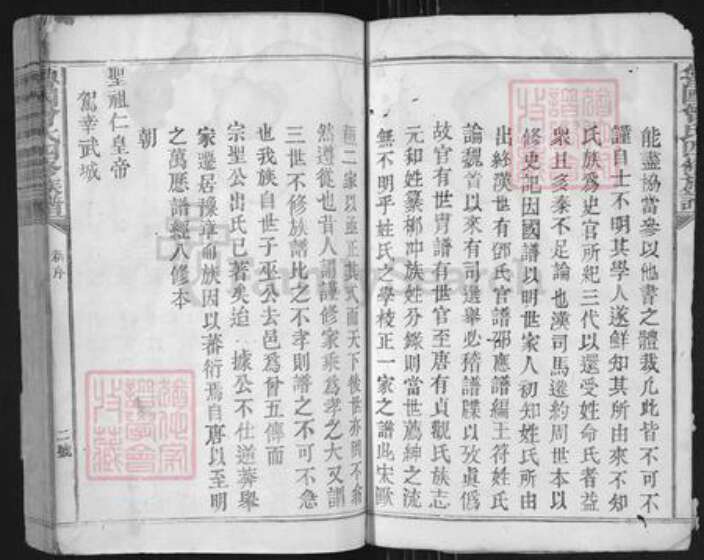 能盡協當參以他書之體裁凡此皆不可不
謹自士不明其學人遂鮮知其所由來不知
氏族爲史官所紀三代以還受姓命氏者益
衆且多秦不足論也漢司馬遷約周世本以
修史記因國譜以明世家人初知姓氏所由
出終漢世有鄧氏官譜邵應譜編王符姓氏
論魏晉以來有司選舉必稽譜牒以攷眞僞
故官有世胄譜有世官至唐有貞觀氏族志
元和姓纂柳冲族姓分錄則當世薦紳之流
無不明乎姓氏之學校正一家之譜此宋歐
蘇二家以亟正其式而天下後世亦罔不翕
然遵從也昔人謂謹修家乘爲孝之大又謂
三世不修族譜比之不孝則譜之不可不急
也我族自世子巫公去邑爲曾五傳而
宗聖公出氏已著矣迨 據公不仕逆莽舉
家遷居豫章命族因以蕃衍焉自唐以至明
之萬歷譜經八修本
朝
聖祖仁皇帝
駕幸武城
魯國曾氏四修族譜
新序
二號